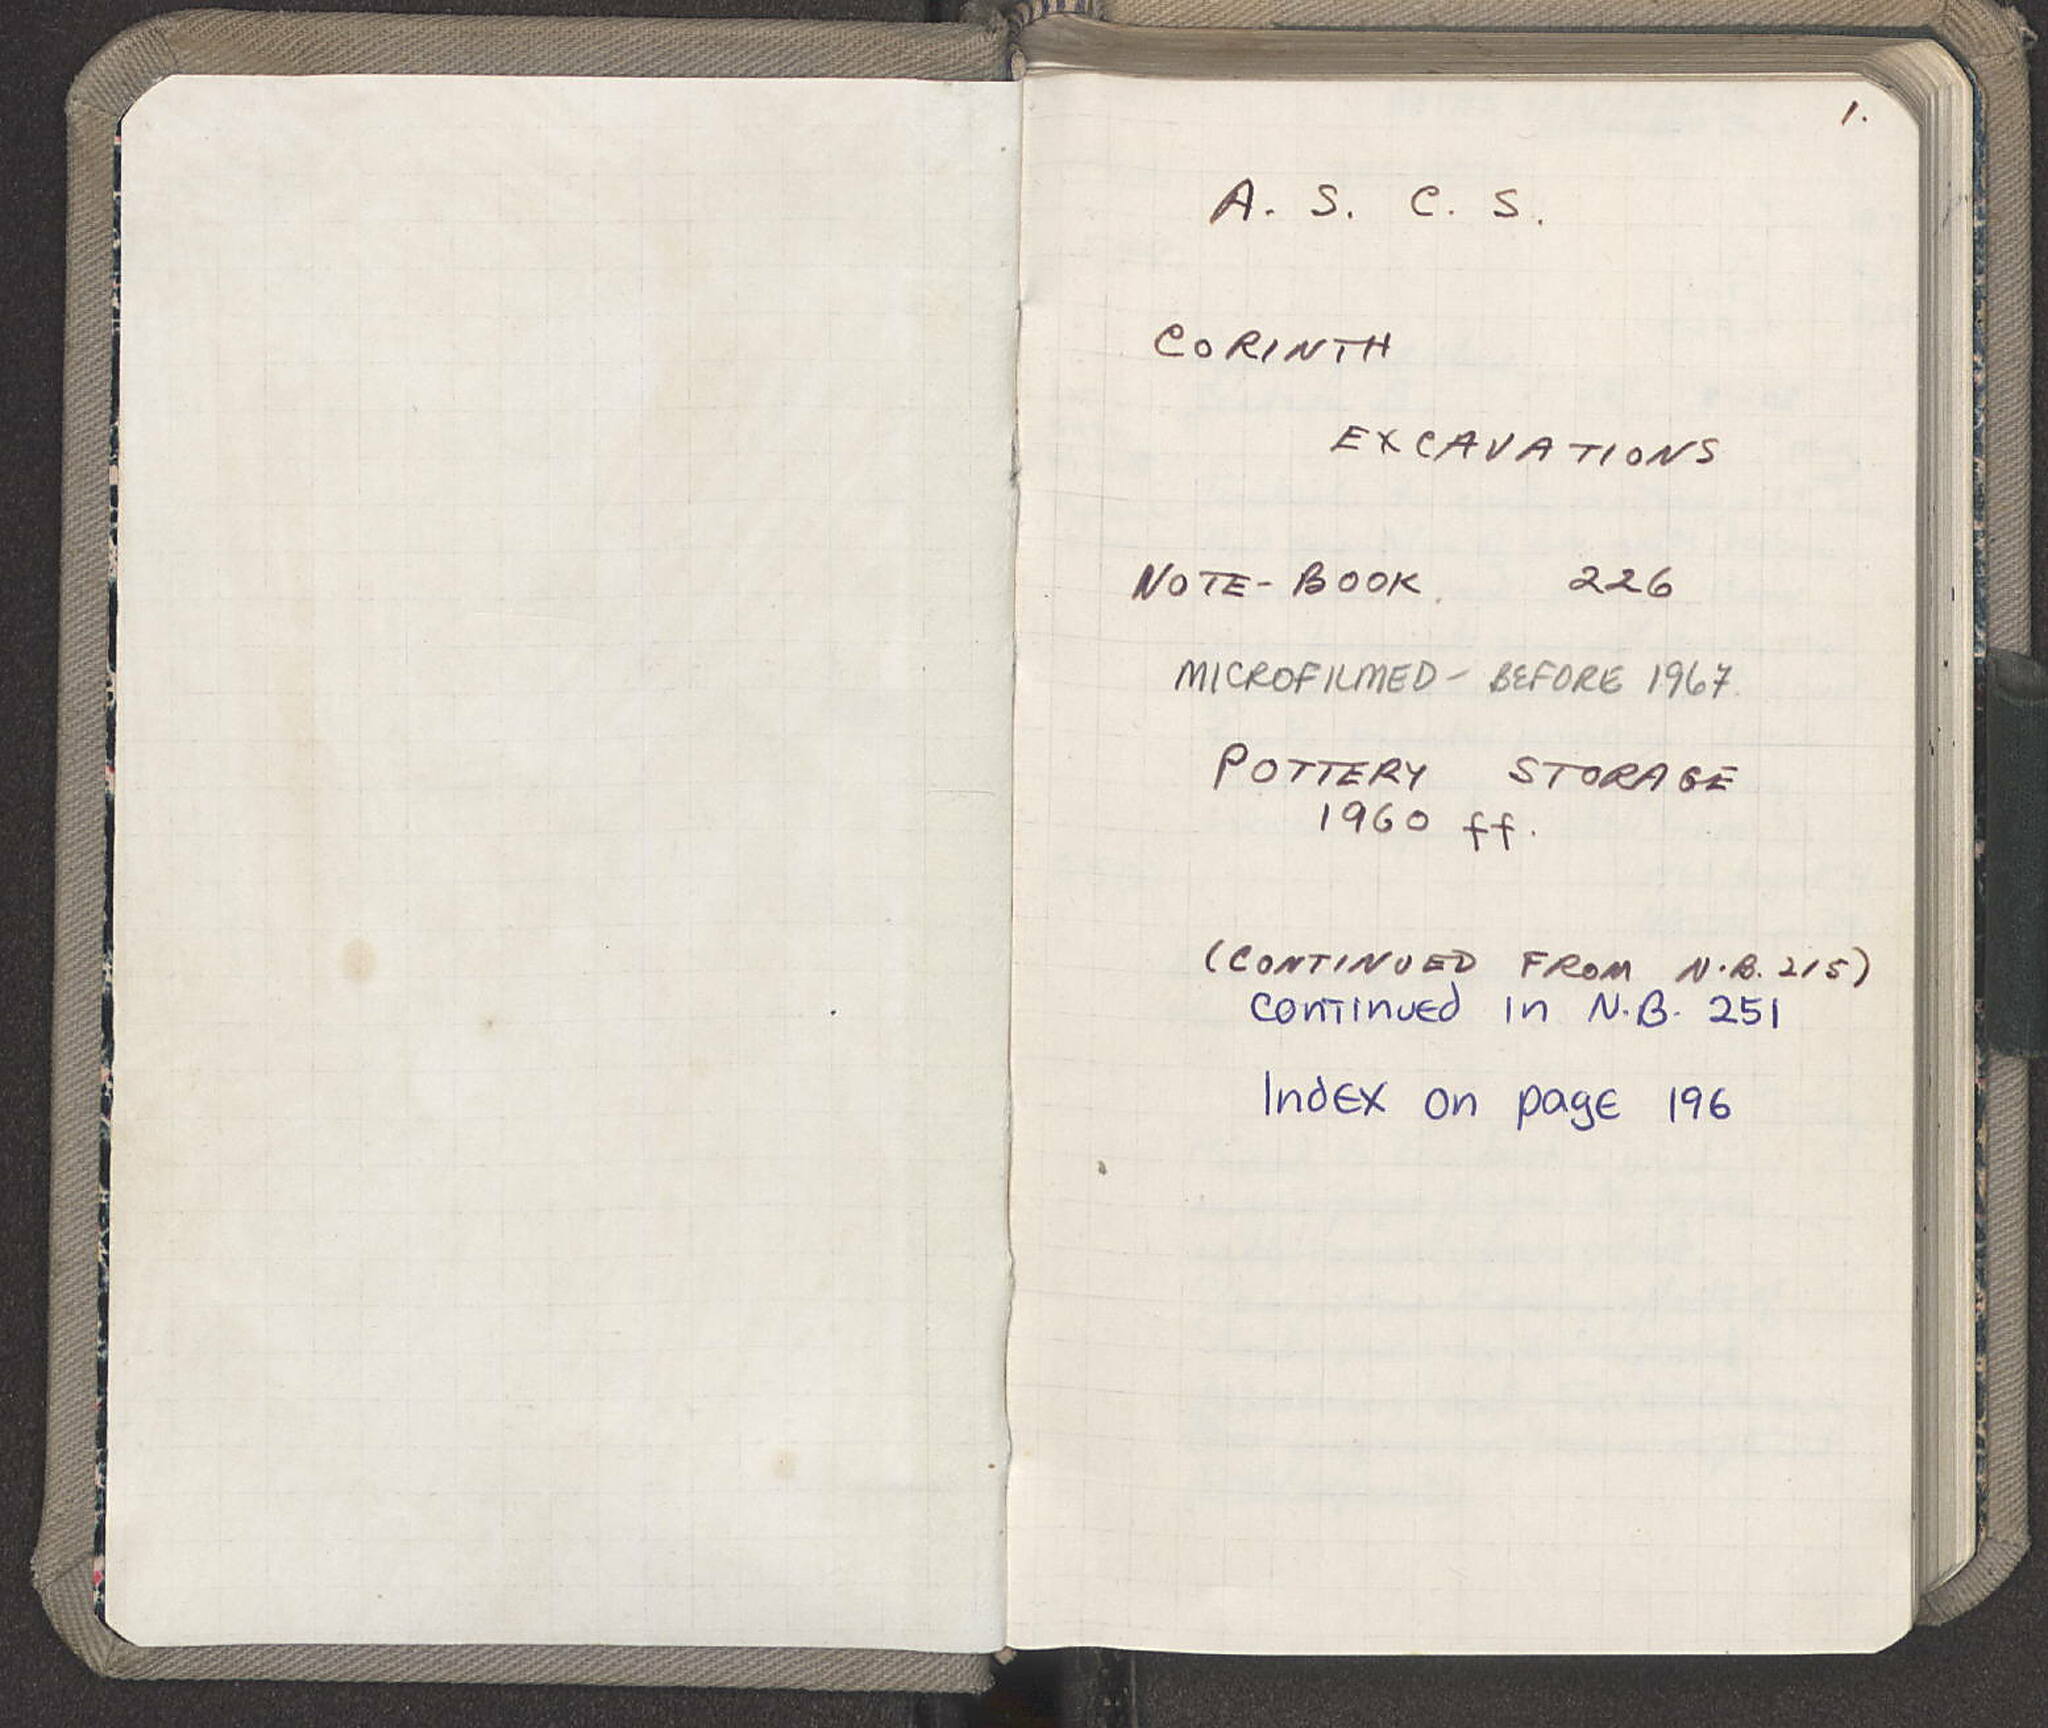 1.
A. S. C. S.
CORINTH
EXCAVATIONS
NOTE-BOOK 226
MICROFILMED - BEFORE 1967
POTTERY STORAGE
1960 ff.
(CONTINUED FROM N.B. 215)
continued in N.B. 251
Index on page 196